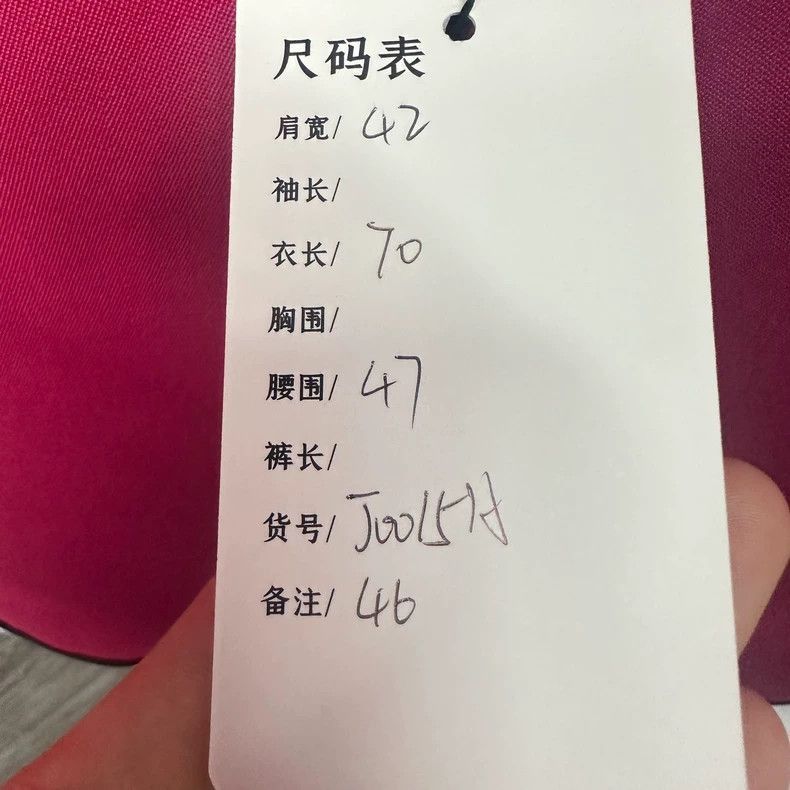 尺码表
肩宽/ 42
袖长/
衣长/ 70
胸围/
腰围/ 47
裤长/
货号/
备注/ 46